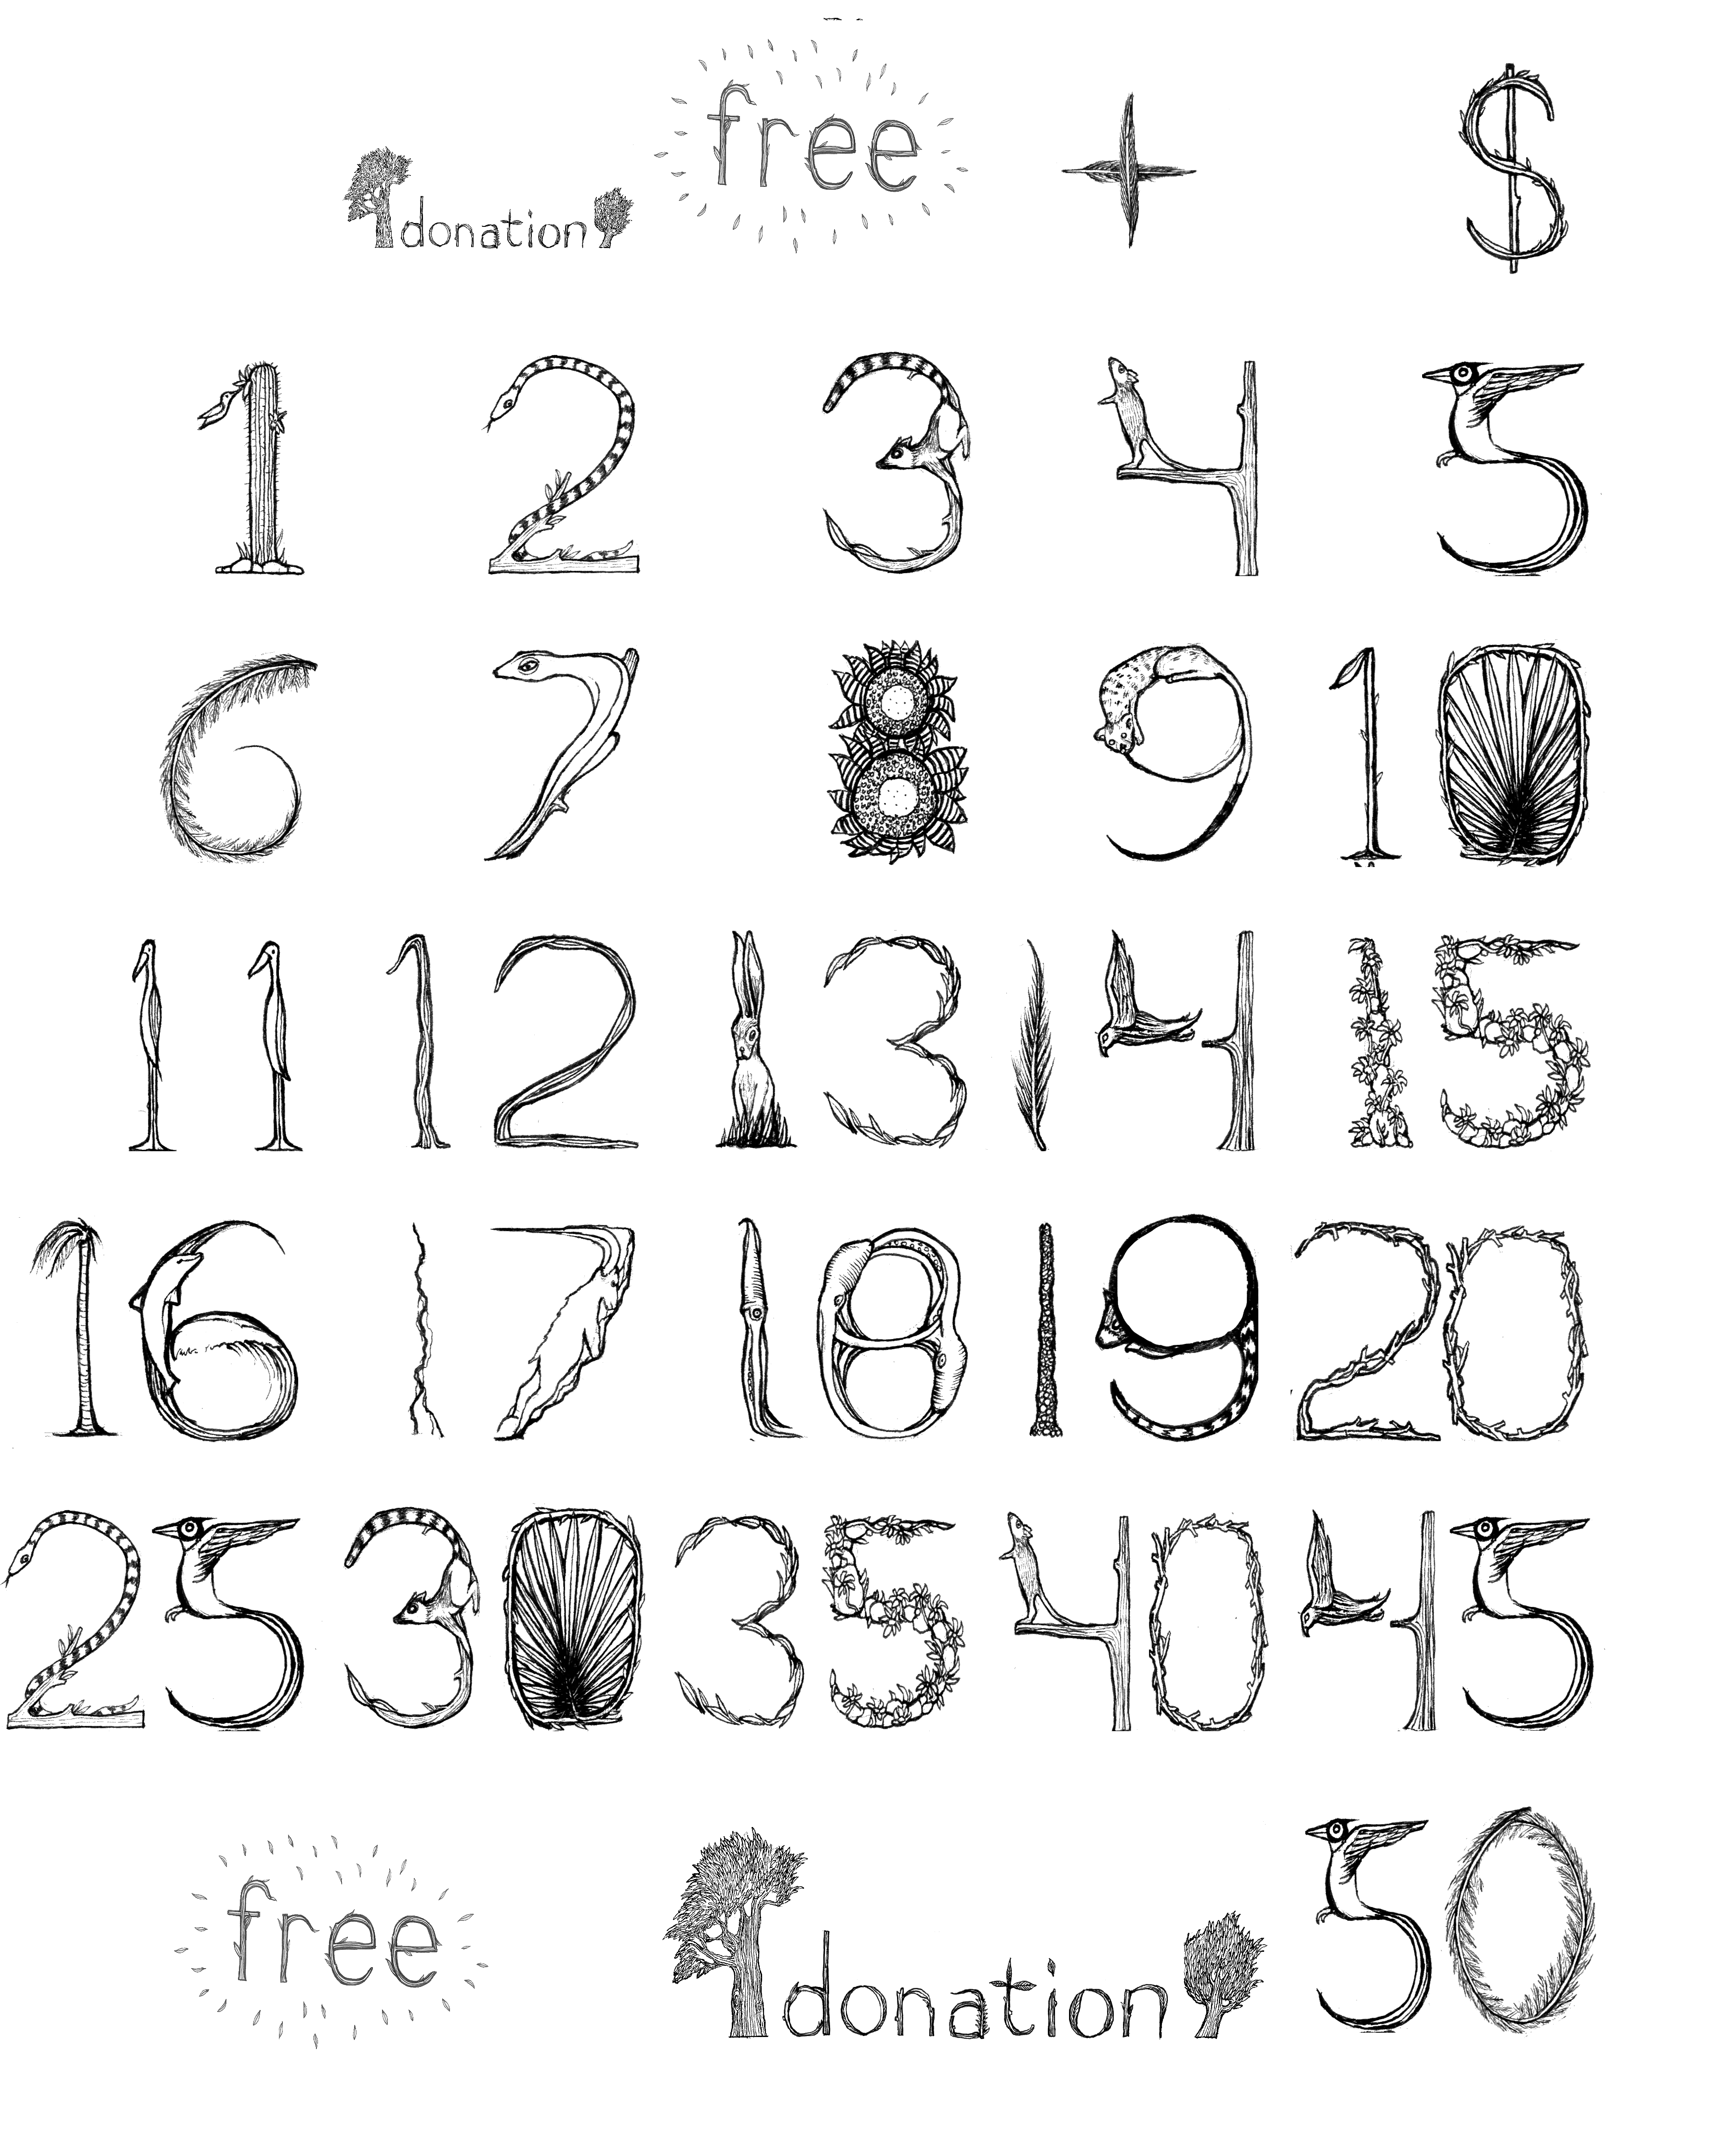 donation free + $
1 2 3 4 5
6 7 8 9 10
11 12 13 14 15
16 17 18 19 20
25 30 35 40 45
free donation 50